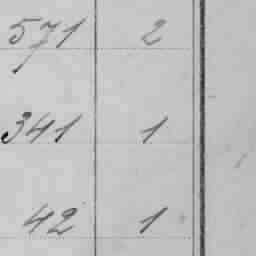 571 2
341 1
42 1